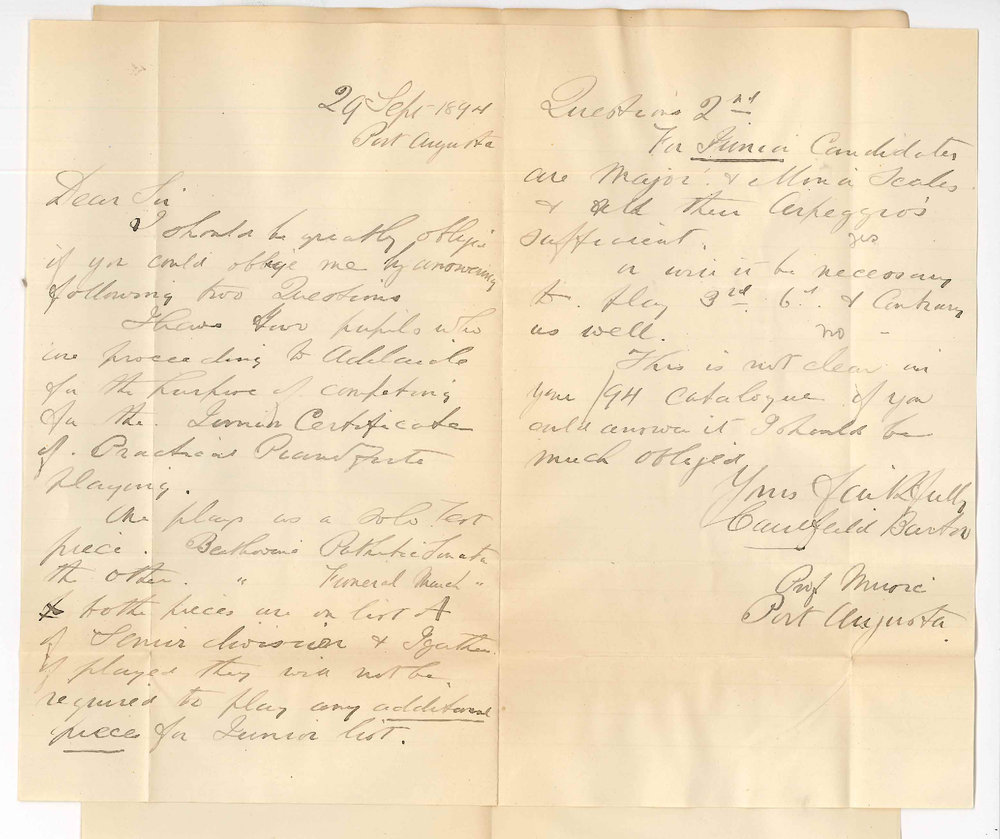 29 Sept 1894
Port Augusta
Dear Sir
I should be greatly oblige
if you could oblige me by answering
following two Questions
I have two pupils who
are proceeding to Adelaide
for the purpose of competing
for the Junior Certificate
of Practical Pianoforte
playing.
One plays as a solo Test
piece. Beethovens Pathetic Sonata
the other. " Funeral March "
bothe pieces are on list A
of Senior division & I gather
if played they will not be
required to play any additional
pieces for Junior list.
Questions 2nd
For Junior Candidates
are Major & Minor Scales
& all their Arpeggio's
sufficient. yes
or will it be necessary
to play 3rd 6th & Contrary
as well. no -
This is not clear in
your /94 Catalogue if you
could answer it I should be
much obliged
Yours faithfully
Caulfeild Barton
Prof Music
Port Augusta.